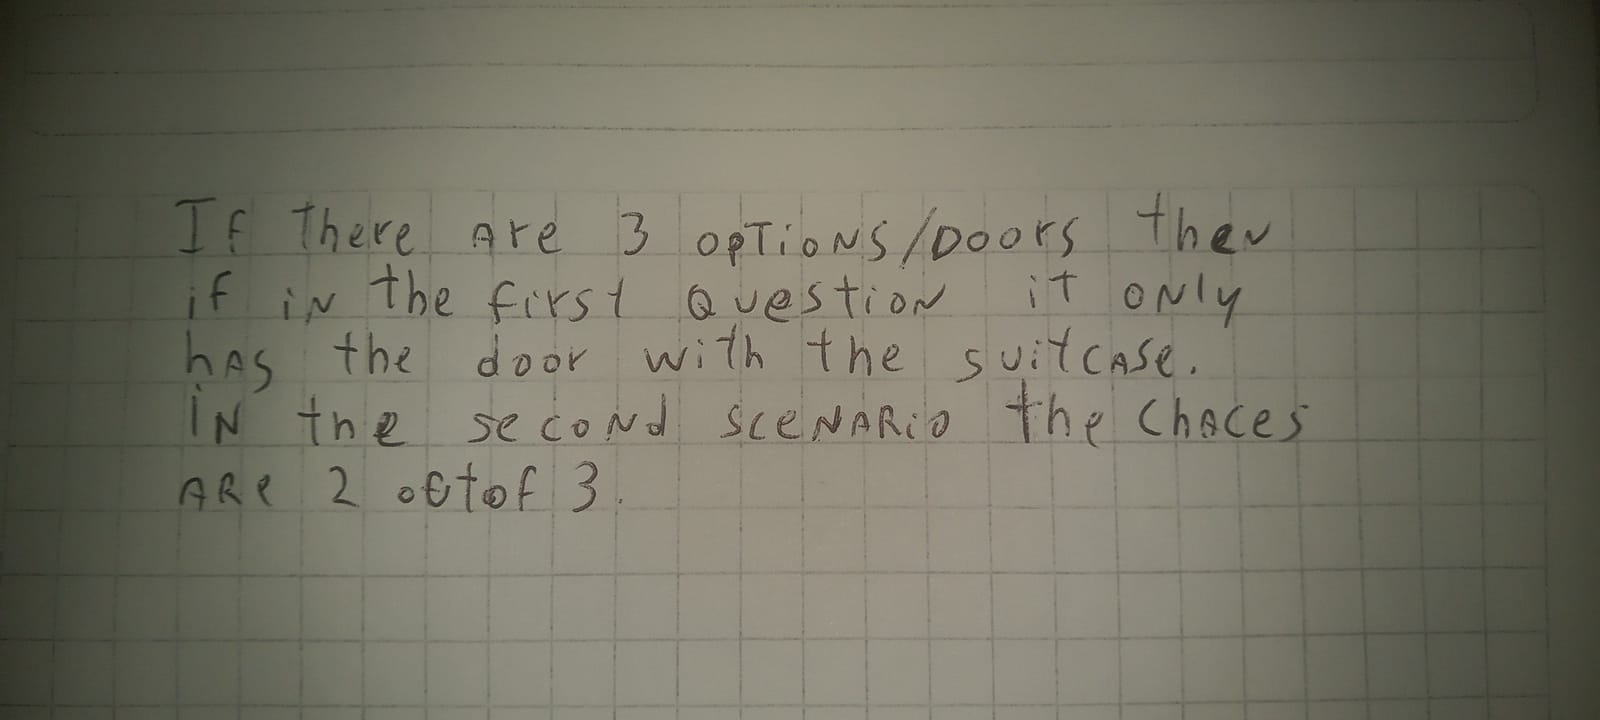 If there are 3 options/Doors then
if in the first Question it only
has the door with the suitcase.
in the second scenario the chaces
are 2 of 3.